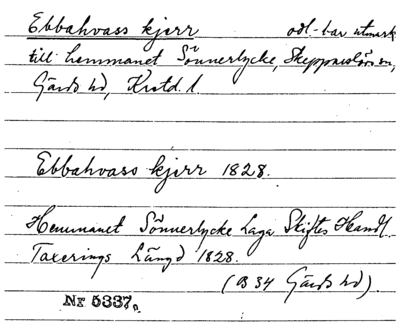 Ebbahvass kjerr odl.-bar utmark
till hemmanet Sönnerlycke, Skeppareslövs sn,
Gärds hd, Krstd. l.
Ebbahvass kjerr 1828.
Hemmanet Sönnerlycke Laga Skiftes Handl.
Taxerings Längd 1828.
(B 34 Gärds hd).
Nr 5337.